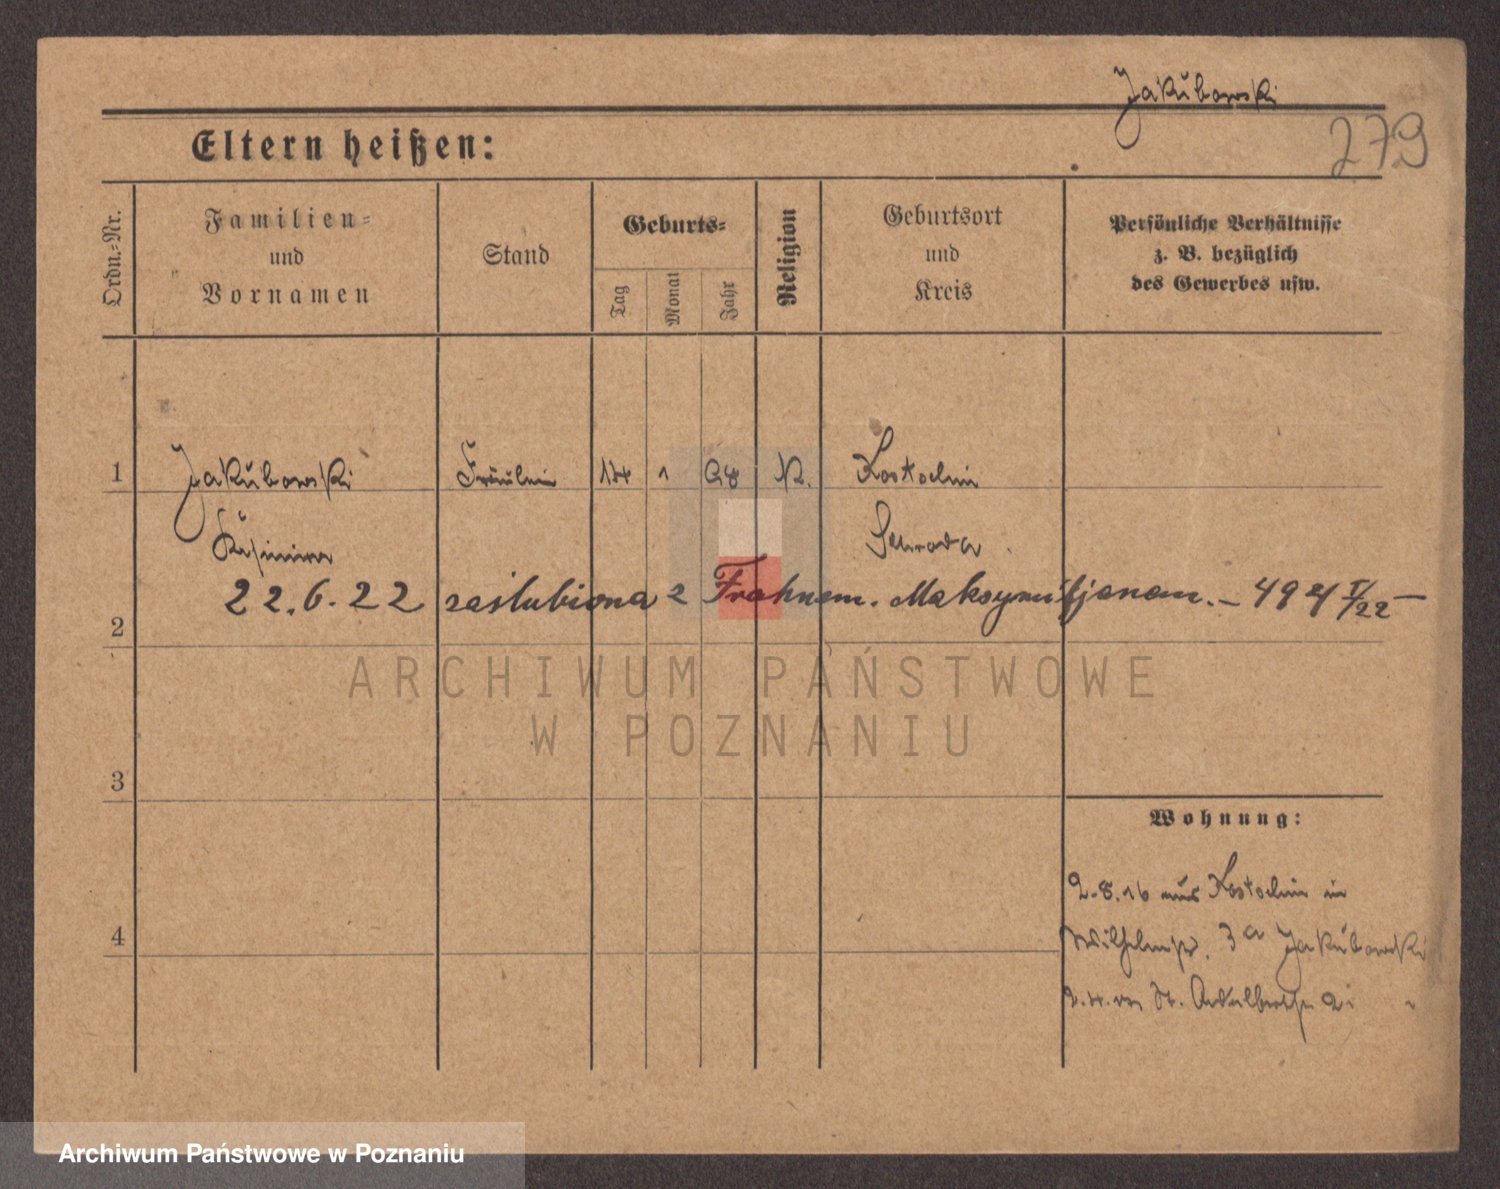 Jakubowski
279
Eltern heißen:
Ordn.-Nr.
Familien-
und
Vornamen
Stand
Geburts-
Tag
Monat
Jahr
Religion
Geburtsort
und
Kreis
Persönliche Verhältnisse
z. B. bezüglich
des Gewerbes usw.
1 Jakubowski Fräulein 14 1 98 K. Kostschin
Kasimira Schroda
22.6.22 zaślubiona z Frahnem. Maksymiljanem. – 494 I/22 –
2
ARCHIWUM PAŃSTWOWE
W POZNANIU
3
Wohnung:
2.8.16 aus Kostschin in
Wilhelmstr. 3a Jakubowski
4
St. Adalbertstr.
Archiwum Państwowe w Poznaniu